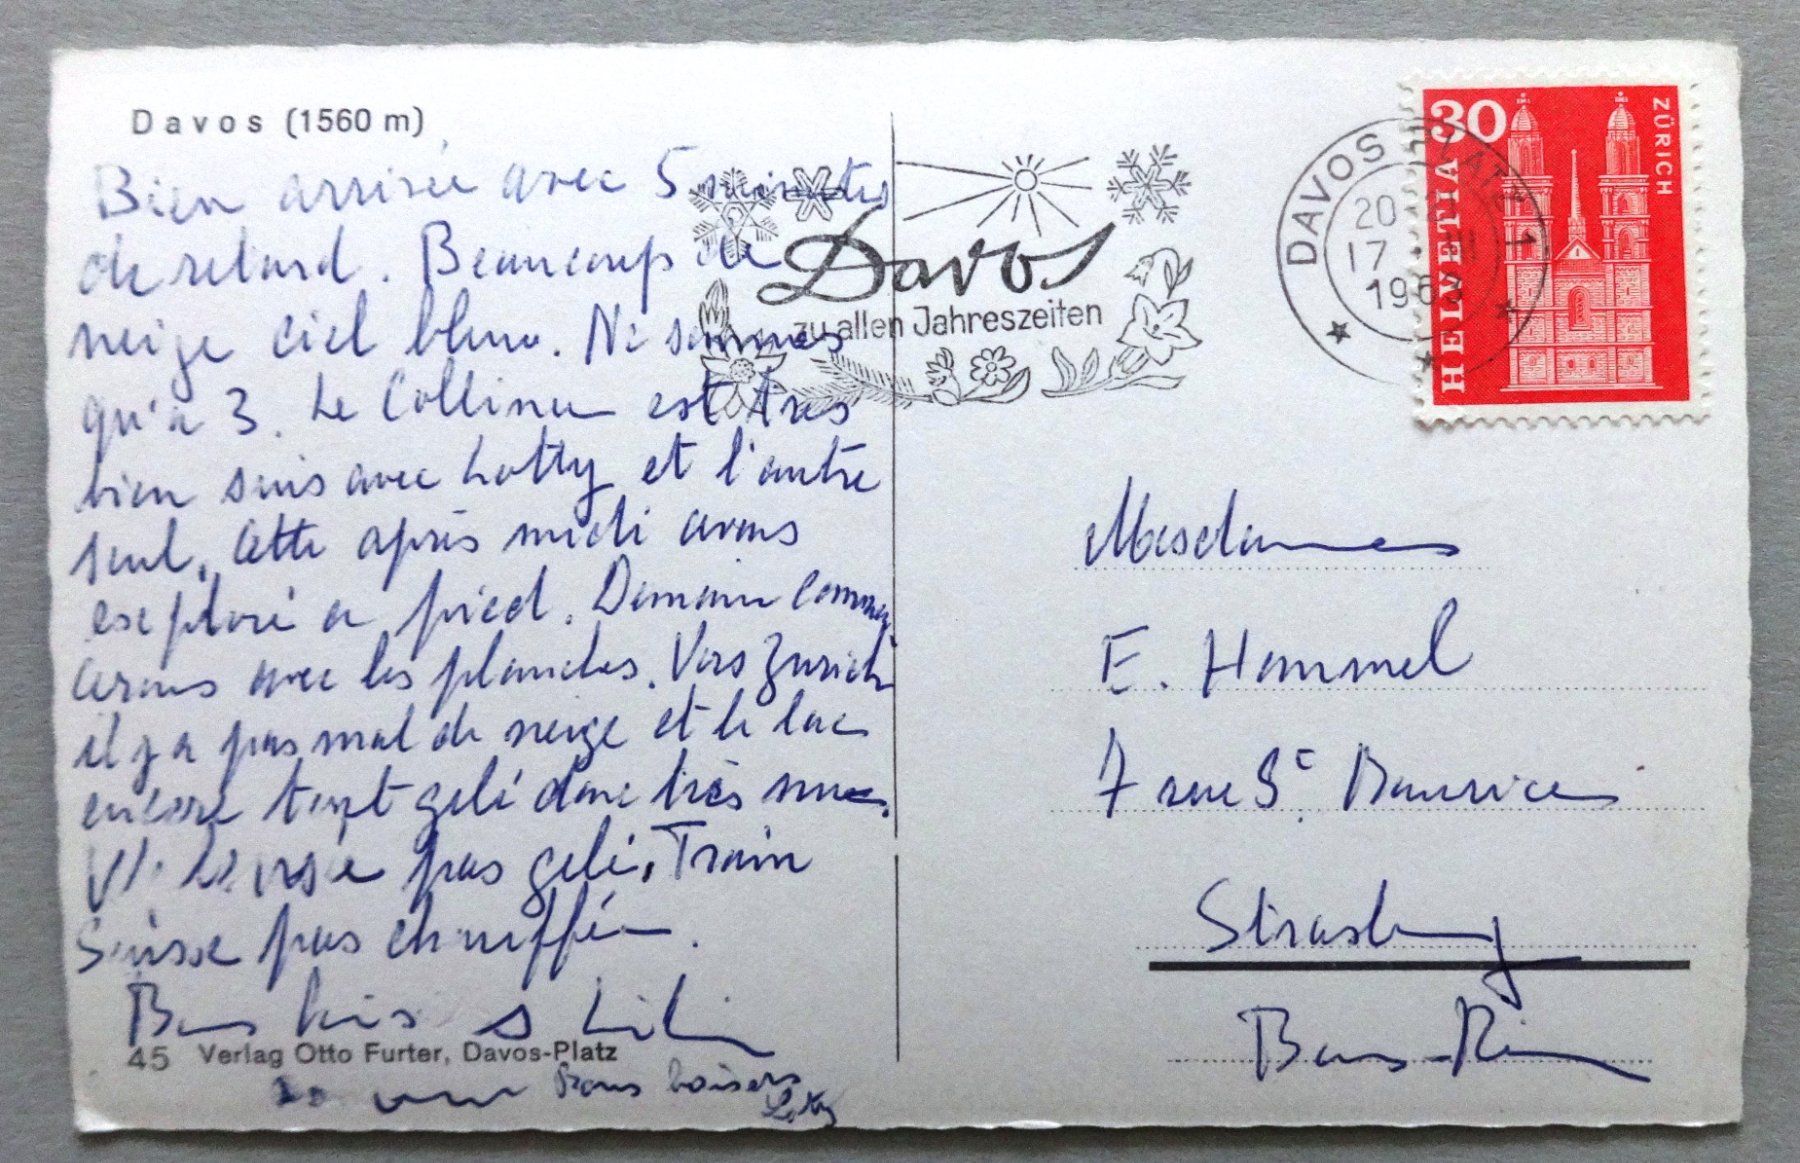 Davos (1560 m)
Bien arrivée avec 5 minutes
de retard. Beaucoup de
neige ciel bleu. Ne sommes
qu'à 3. Le Collineu est très
bien suis avec Lotty et l'autre
seul. Cette après midi avons
exploré à pied. Demain commen
avec les planches. Vers Zurich
il y a pas mal de neige et le lac
encore tout gelé donc très
pas gelé. Train
Suisse pas chauffé.
Bons baisers Lili
45 Verlag Otto Furter, Davos-Platz
bons baisers
Lotty
Davos
zu allen Jahreszeiten
DAVOS PLATZ 1
20
17
196
30
HELVETIA
ZÜRICH
Mesdames
E. Hammel
7 rue St Maurice
Strasbourg
Bas-Rhin